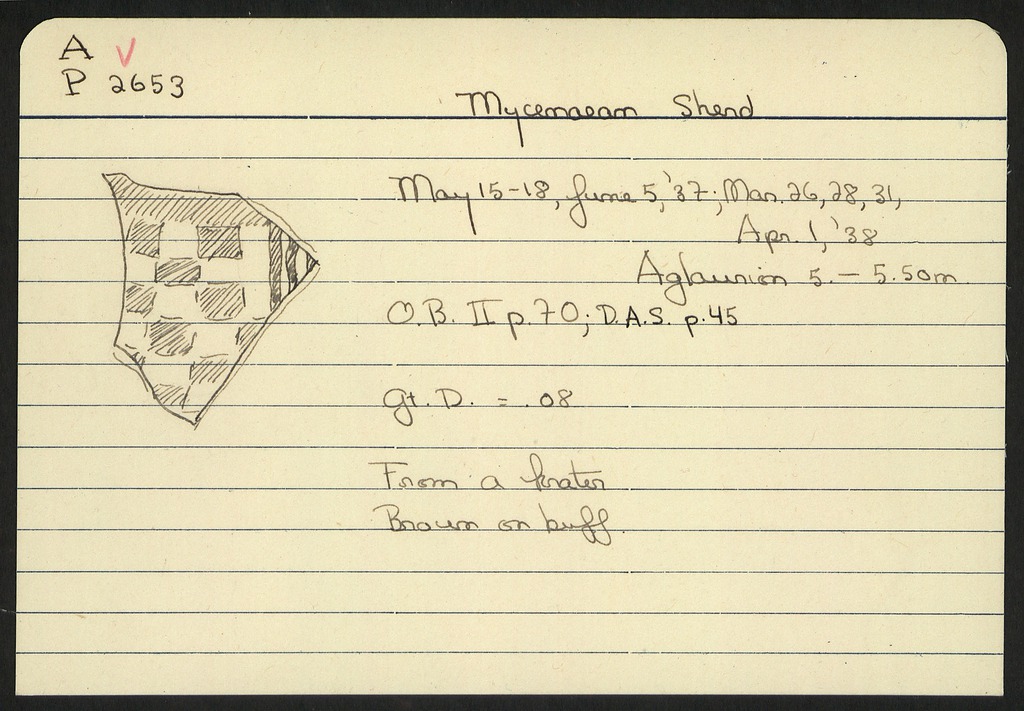 A V
P 2653
Mycenaean Sherd
May 15-18, June 5, '37; Mar. 26, 28, 31,
Apr. 1, '38
Aglaurion 5. - 5.50m
O.B. II p. 70; D.A.S. p. 45
Gt. D. = .08
From a krater
Brown on buff.